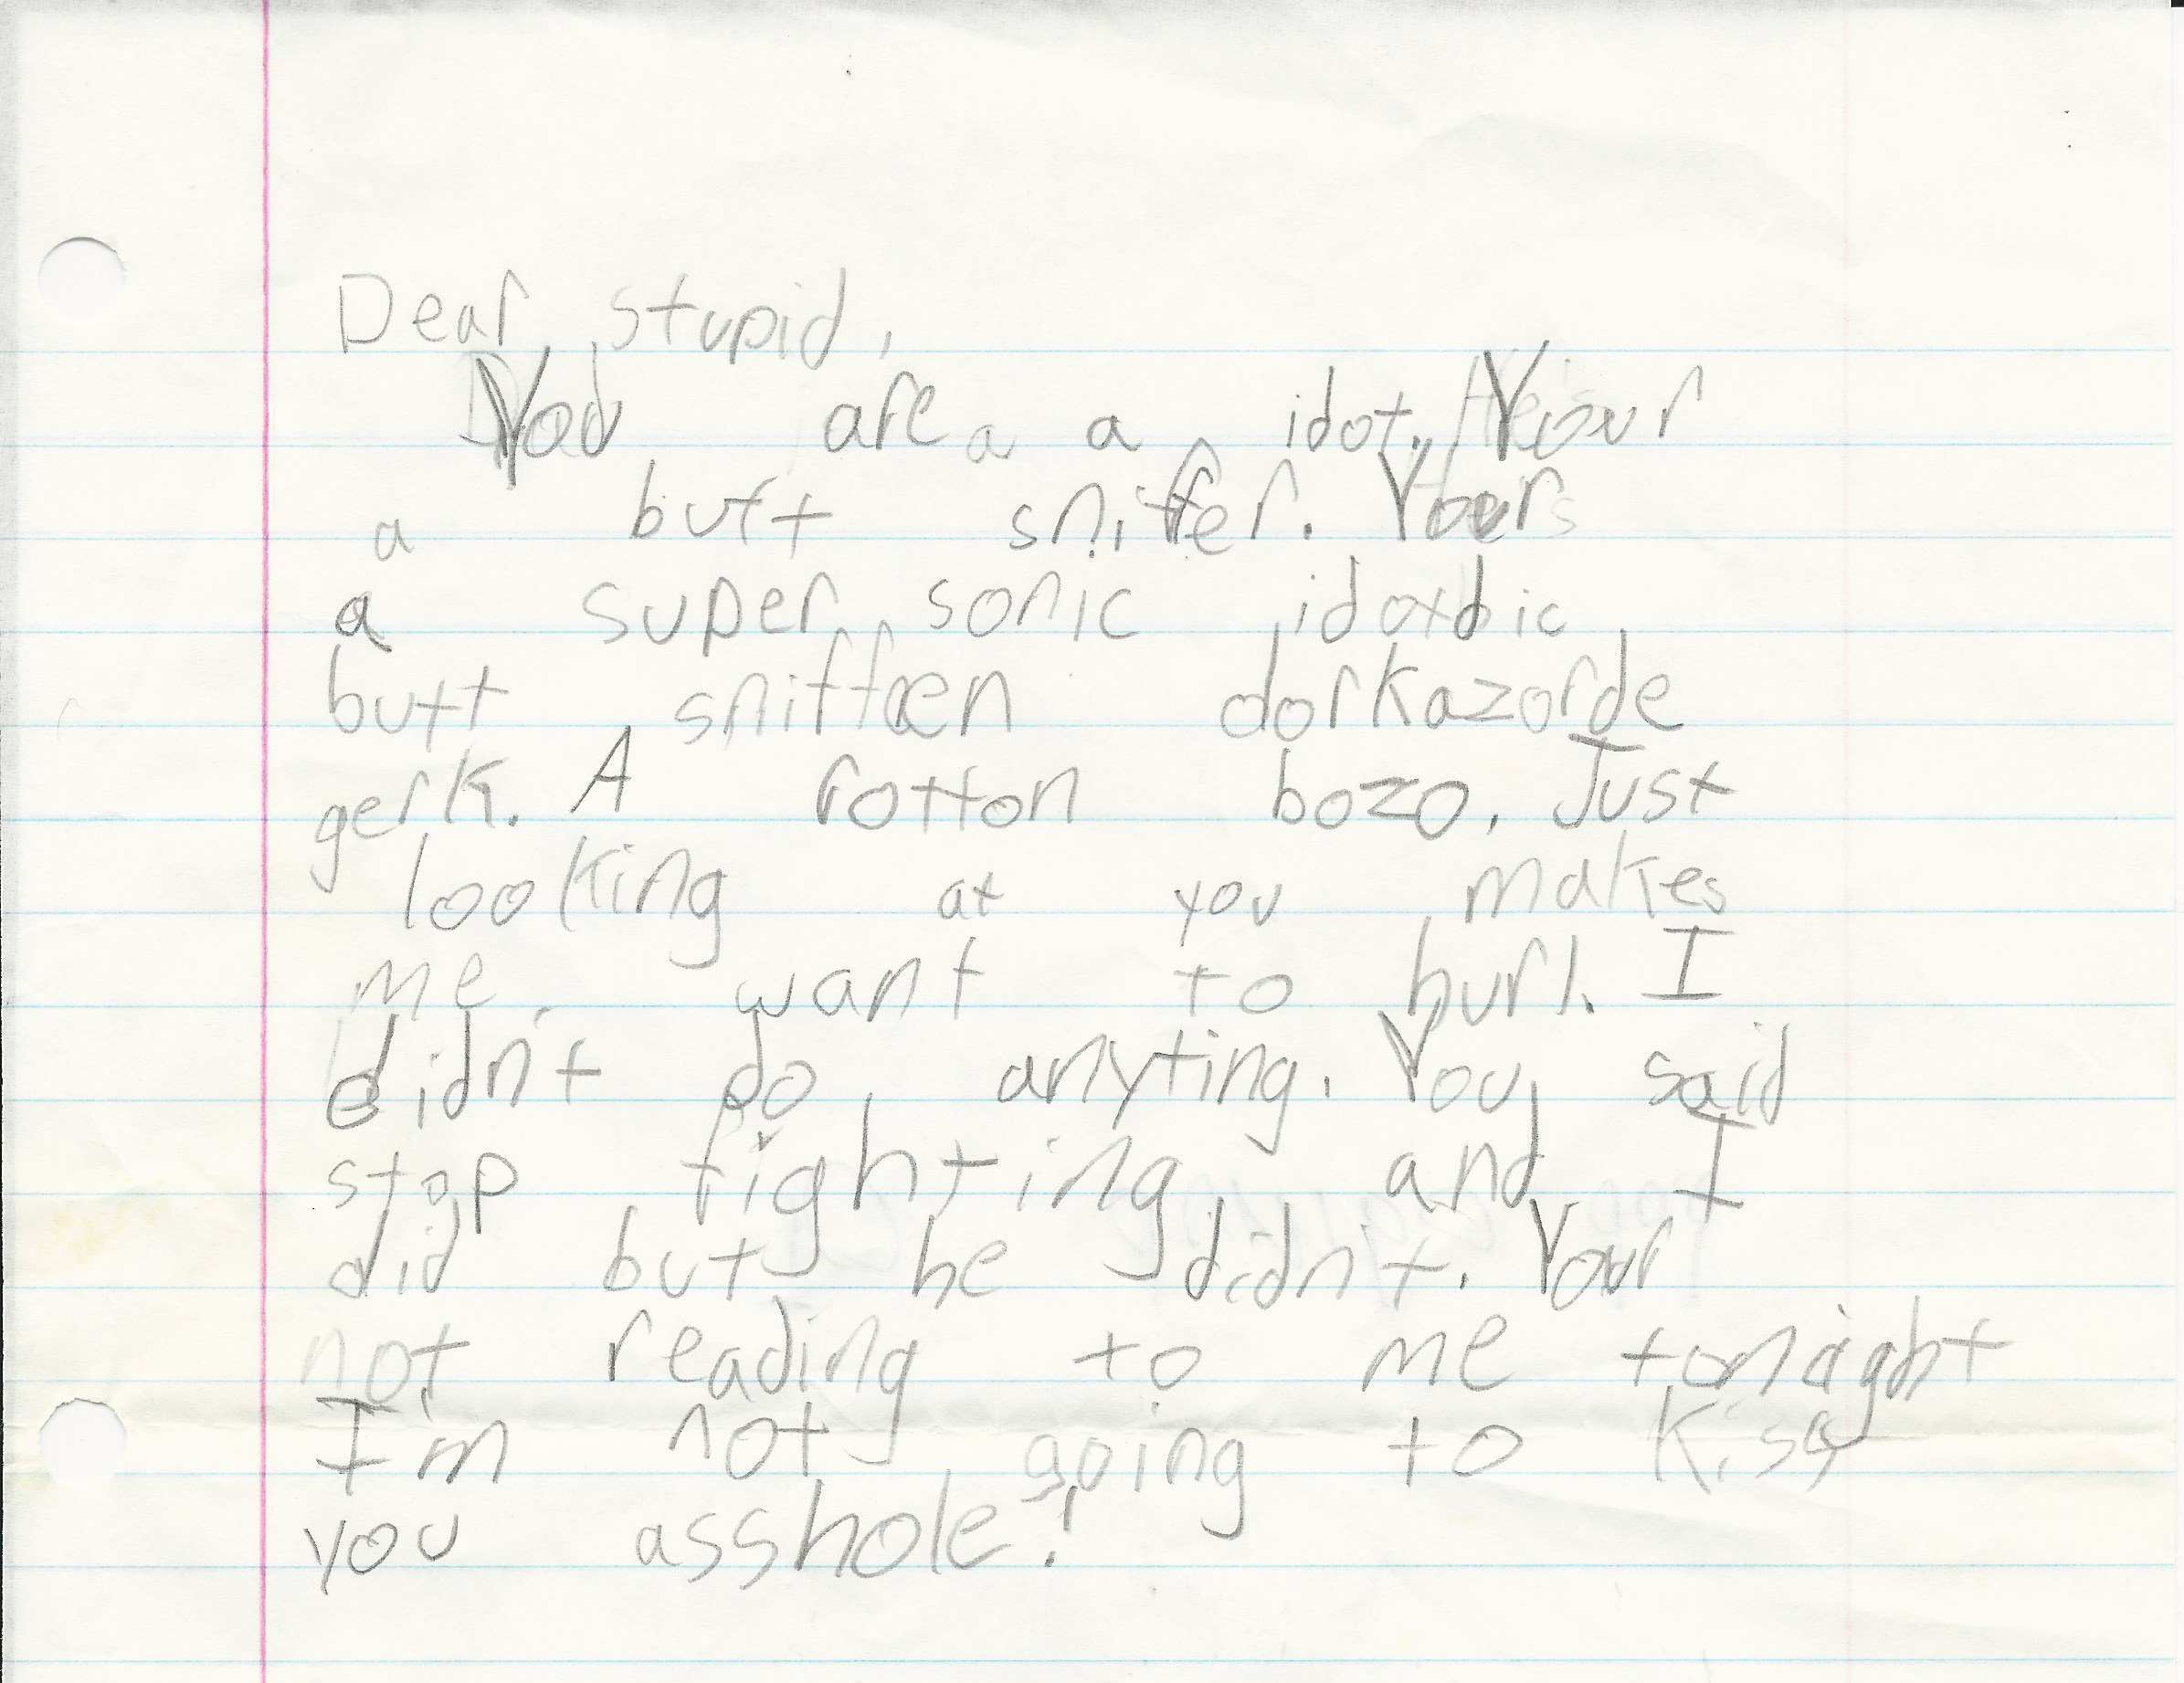 Dear stupid,
You are a a idot. Your
a butt sniffer. Your
a super sonic idotbic
butt sniffen dorkazorde
gerk. A rotton bozo. Just
looking at you makes
me want to hurl. I
didn't do anyting. You said
stop fighting and I
did but he didn't. Your
not reading to me tonight
I'm not going to kiss
you asshole!